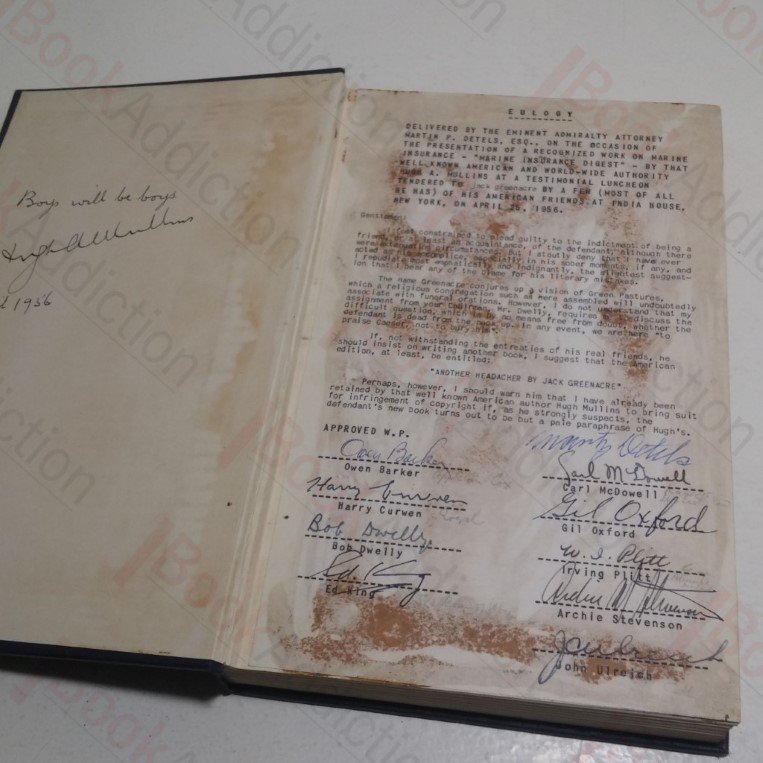 Boys will be boys
Hugh A Mullins
1956
EULOGY
DELIVERED BY THE EMINENT ADMIRALTY ATTORNEY
MARTIN P. DETELS, ESQ., ON THE OCCASION OF
THE PRESENTATION OF A RECOGNIZED WORK ON MARINE
INSURANCE - "MARINE INSURANCE DIGEST" - BY THAT
WELL KNOWN AMERICAN AND WORLD-WIDE AUTHORITY
HUGH A. MULLINS AT A TESTIMONIAL LUNCHEON
TENDERED TO jack greenacre BY A FEW (MOST OF ALL
HE HAS) OF HIS AMERICAN FRIENDS, AT INDIA HOUSE,
NEW YORK, ON APRIL 25, 1956.
Gentlemen:
I feel constrained to plead guilty to the indictment of being a
friend, or at least an acquaintance, of the defendant, although there
were extenuating circumstances. But I stoutly deny that I have ever
acted as his accomplice, especially in his sober moments, if any, and
I repudiate most emphatically and indignantly, the slightest suggest-
ion that I bear any of the blame for his literary mistakes.
The name Greenacre conjures up a vision of Green Pastures,
which a religious congregation such as here assembled will undoubtedly
associate with funeral orations. However, I do not understand that my
assignment from your Chairman, Mr. Dwelly, requires me to discuss the
difficult question, which is by no means free from doubt, whether the
defendant is dead from the neck up. In any event, we are here "to
praise Caesar, not to bury him".
If, not withstanding the entreaties of his real friends, he
should insist on writing another book, I suggest that the American
edition, at least, be entitled:
"ANOTHER HEADACHER BY JACK GREENACRE"
Perhaps, however, I should warn him that I have already been
retained by that well known American author Hugh Mullins to bring suit
for infringement of copyright if, as he strongly suspects, the
defendant's new book turns out to be but a pale paraphrase of Hugh's.
APPROVED W.P.
Marty Detels
Owen Barker
Owen Barker
Carl McDowell
Carl McDowell
Harry Curwen
Harry Curwen
Gil Oxford
Gil Oxford
Bob Dwelly
Bob Dwelly
W. I. Plitt
Irving Plitt
Ed. King
Ed King
Archie M Stevenson
Archie Stevenson
J C Ulreich
John Ulreich
Book Addiction